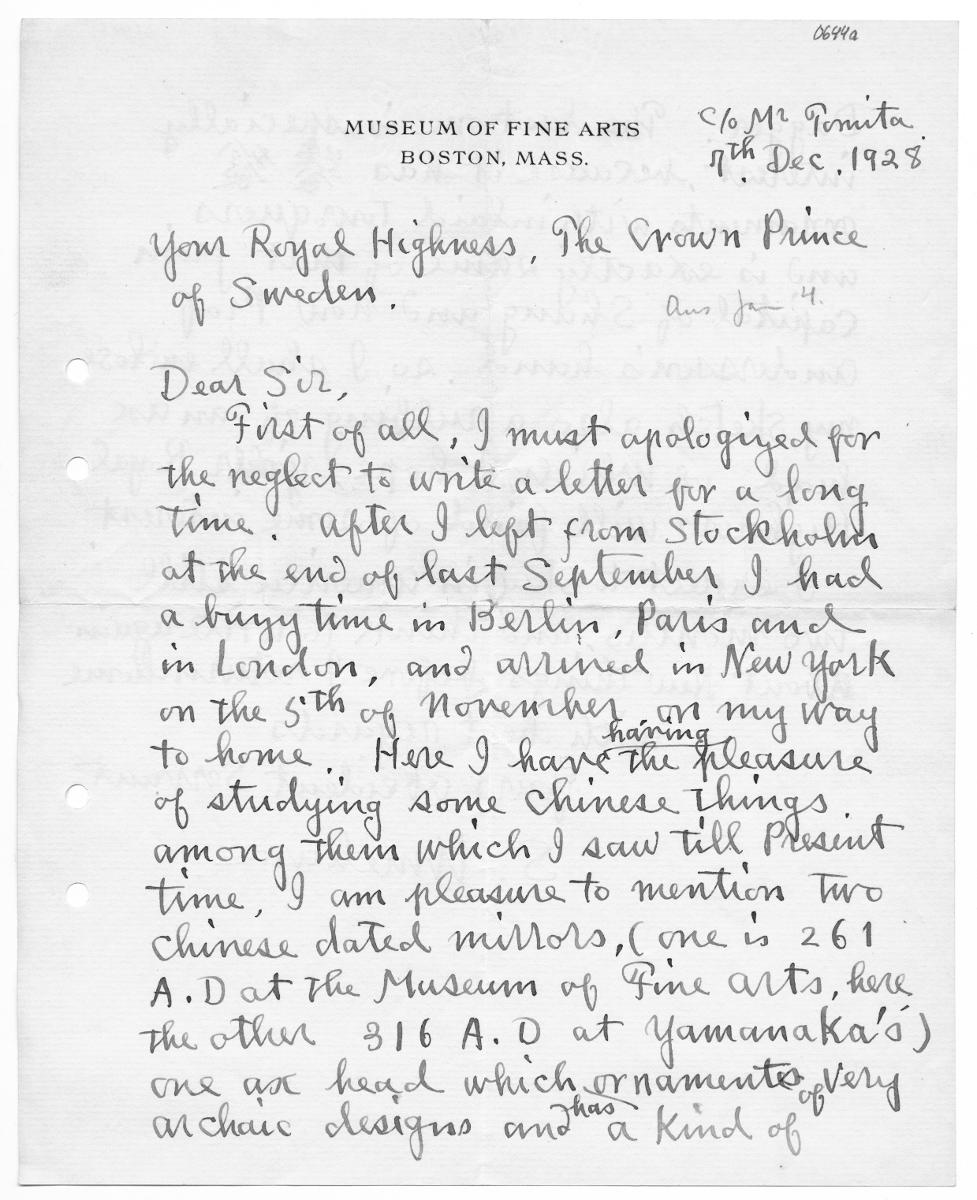 0644a
c/o Mr Tomita.
MUSEUM OF FINE ARTS
BOSTON, MASS.
7th. Dec. 1928
Your Royal Highness, The Crown Prince
of Sweden.
Ans Jan 4.
Dear Sir,
First of all, I must apologized for
the neglect to write a letter for a long
time. After I left from Stockholm
at the end of last September I had
a buyy time in Berlin, Paris and
in London, and arrined in New York
on the 5th of November on my way
to home. Here I have having the pleasure
of studying some Chinese things
among them which I saw till Present
time, I am pleasure to mention two
Chinese dated mirrors, (one is 261
A.D at the Museum of Fine Arts, here
the other 316 A.D at Yamanaka's)
one ax head which ornaments of very
archaic designs and has a kind of